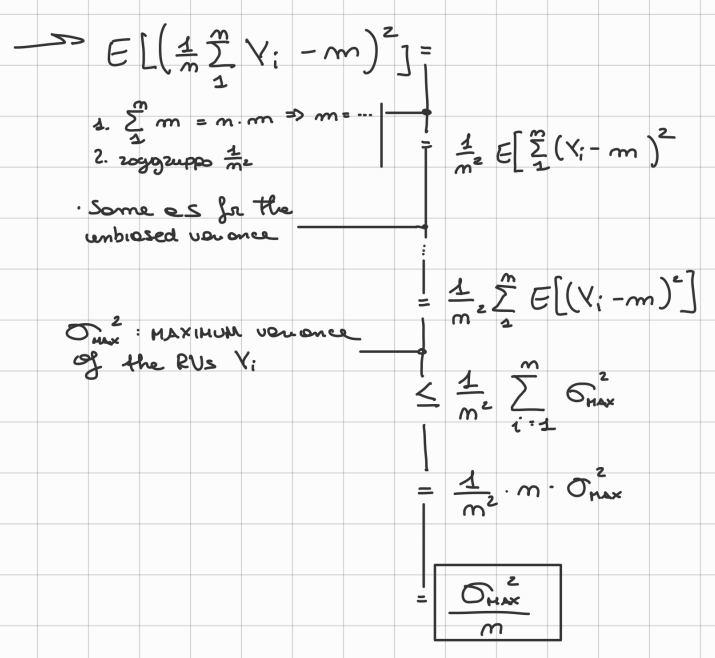 → E[(1/n ∑₁ⁿ Yᵢ - m)²] =
1. ∑₁ⁿ m = n·m ⇒ m = ...
2. raggruppo 1/n²
= 1/n² E[∑₁ⁿ (Yᵢ - m)²
· Same as for the
unbiased variance
⋮
= 1/n² ∑₁ⁿ E[(Yᵢ - m)²]
σ²_MAX : MAXIMUM variance
of the RVs Yᵢ
≤ 1/n² ∑ᵢ₌₁ⁿ σ²_MAX
= 1/n² · n · σ²_MAX
= σ²_MAX / n